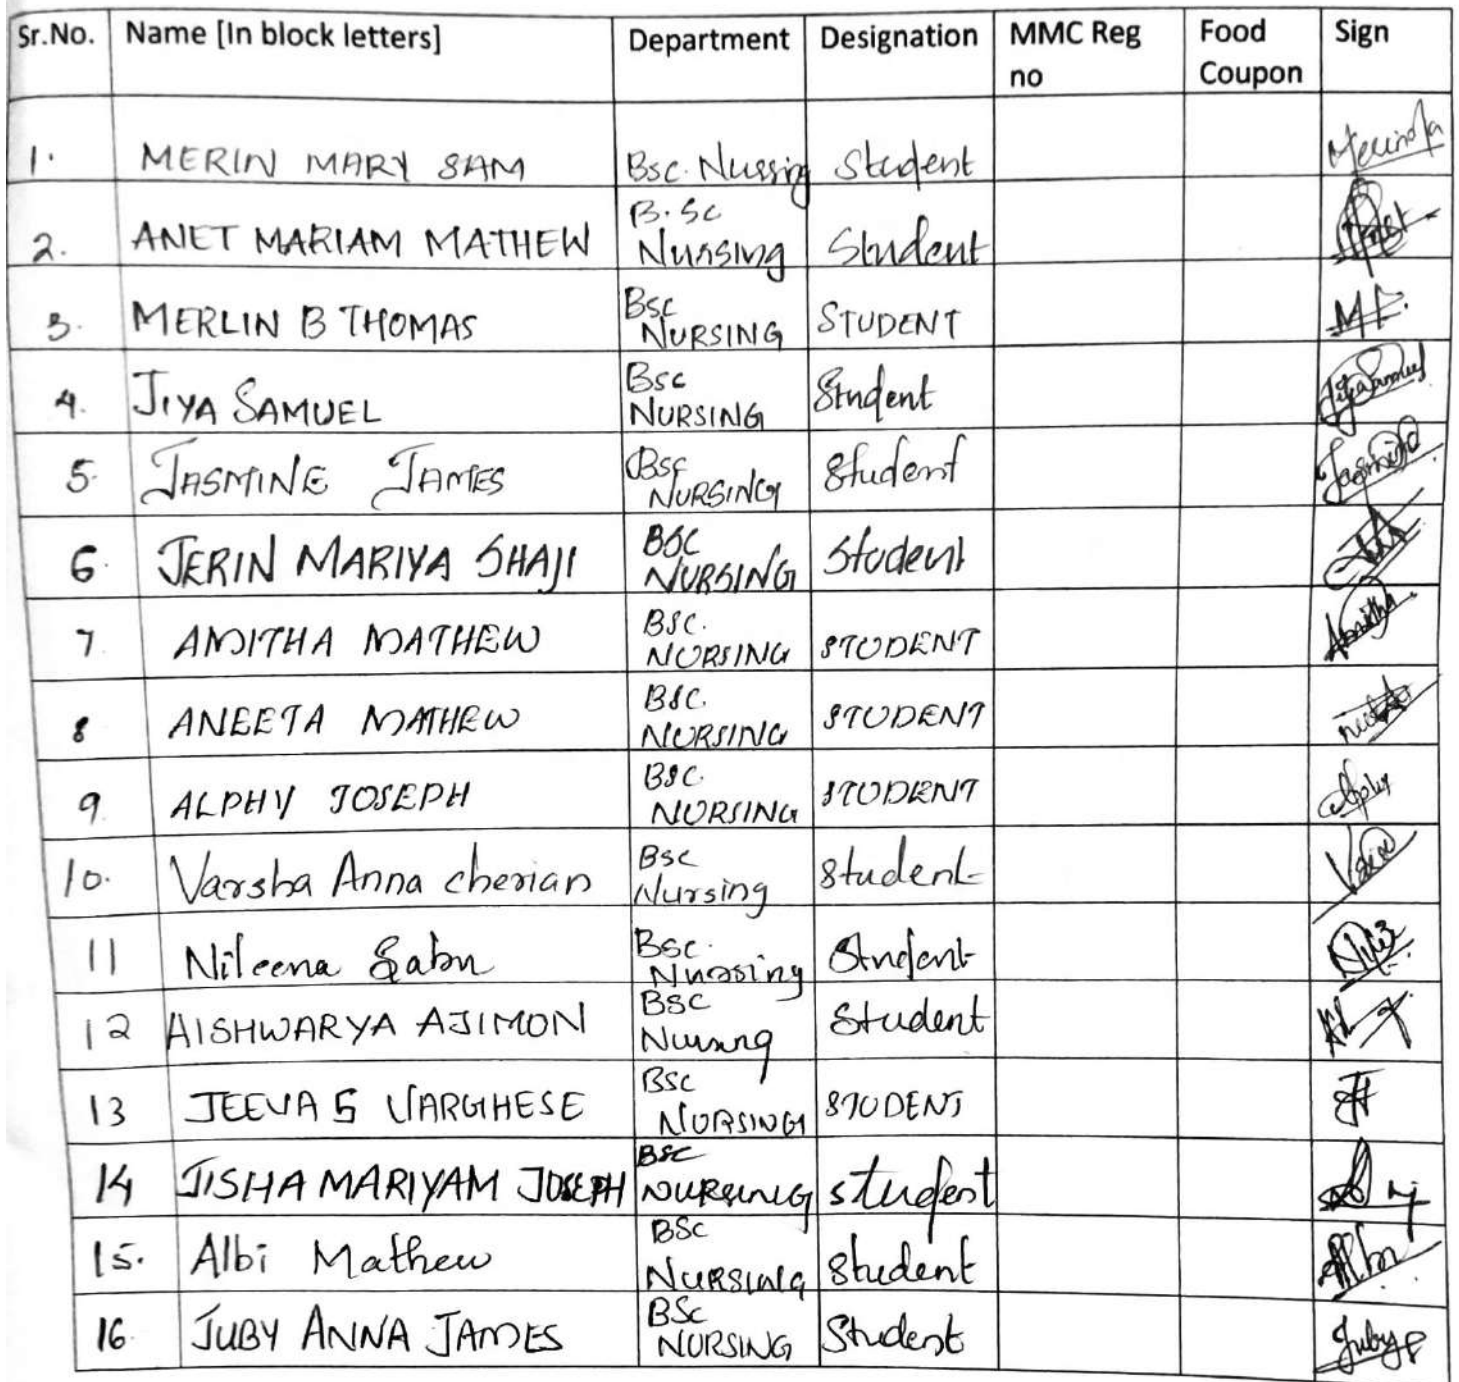 Sr.No. Name [In block letters] Department Designation MMC Reg no Food Coupon Sign
1. MERIN MARY SAM Bsc. Nursing Student
2. ANET MARIAM MATHEW B.Sc Nursing Student
3. MERLIN B THOMAS Bsc NURSING STUDENT
4. JIYA SAMUEL Bsc NURSING Student JiyaSamuel
5. JASMINE JAMES Bsc NURSING Student
6. JERIN MARIYA SHAJI BSC NURSING Student
7 AMITHA MATHEW BSC. NURSING STUDENT Amitha
8 ANEETA MATHEW BSC. NURSING STUDENT
9. ALPHY JOSEPH BSC. NURSING STUDENT Alphy
10. Varsha Anna cherian Bsc Nursing Student
11 Nileena Sabu Bsc. Nursing Student
12 AISHWARYA AJIMON BSC Nursing Student
13 JEEVA S VARGHESE BSC NURSING STUDENT
14 JISHA MARIYAM JOSEPH BSC NURSING student
15. Albi Mathew BSc NURSING Student Albi
16. JUBY ANNA JAMES BSc NURSING Student Juby